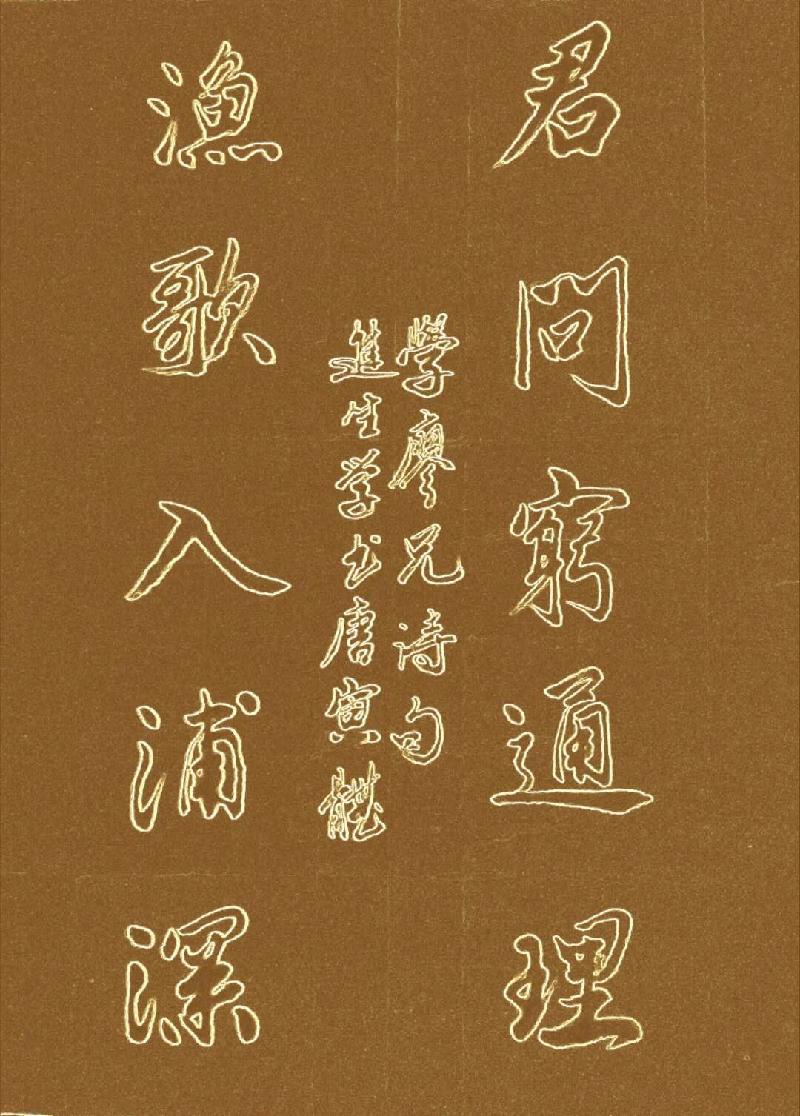 君問窮通理
學廖兄诗句
進生学书唐寅體
漁歌入浦深